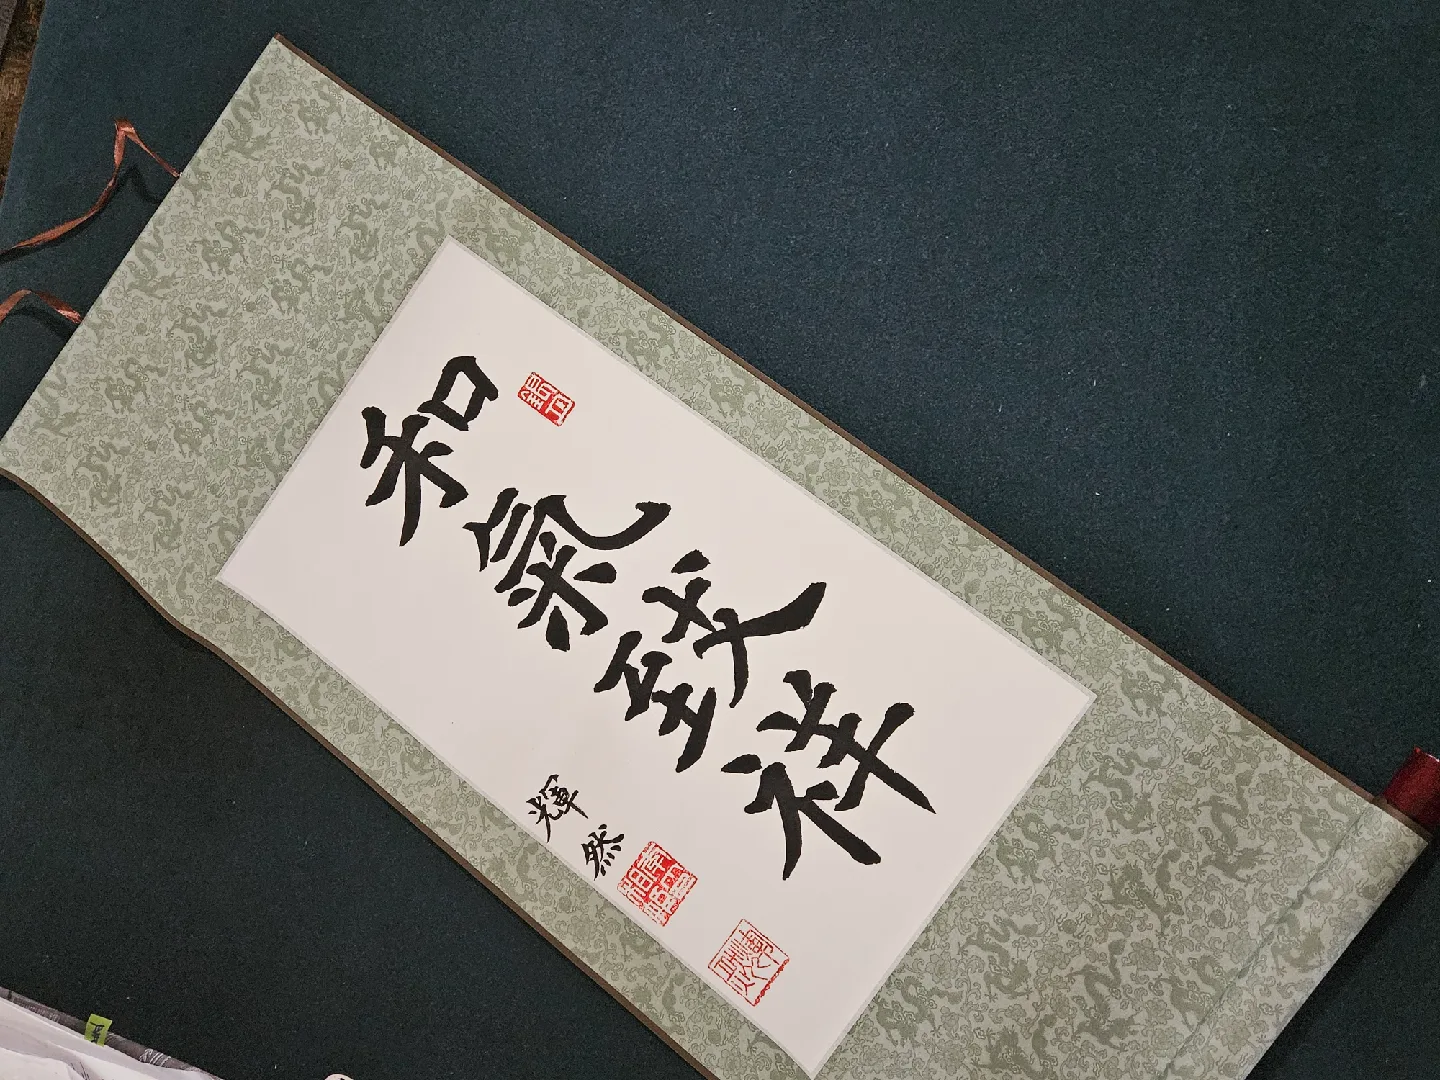 和氣致祥
輝然